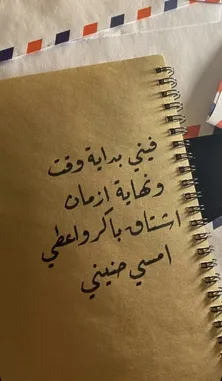 فيني بداية وقت
ونهاية ازمان
اشتاق باكر واعطي
امسي حنيني